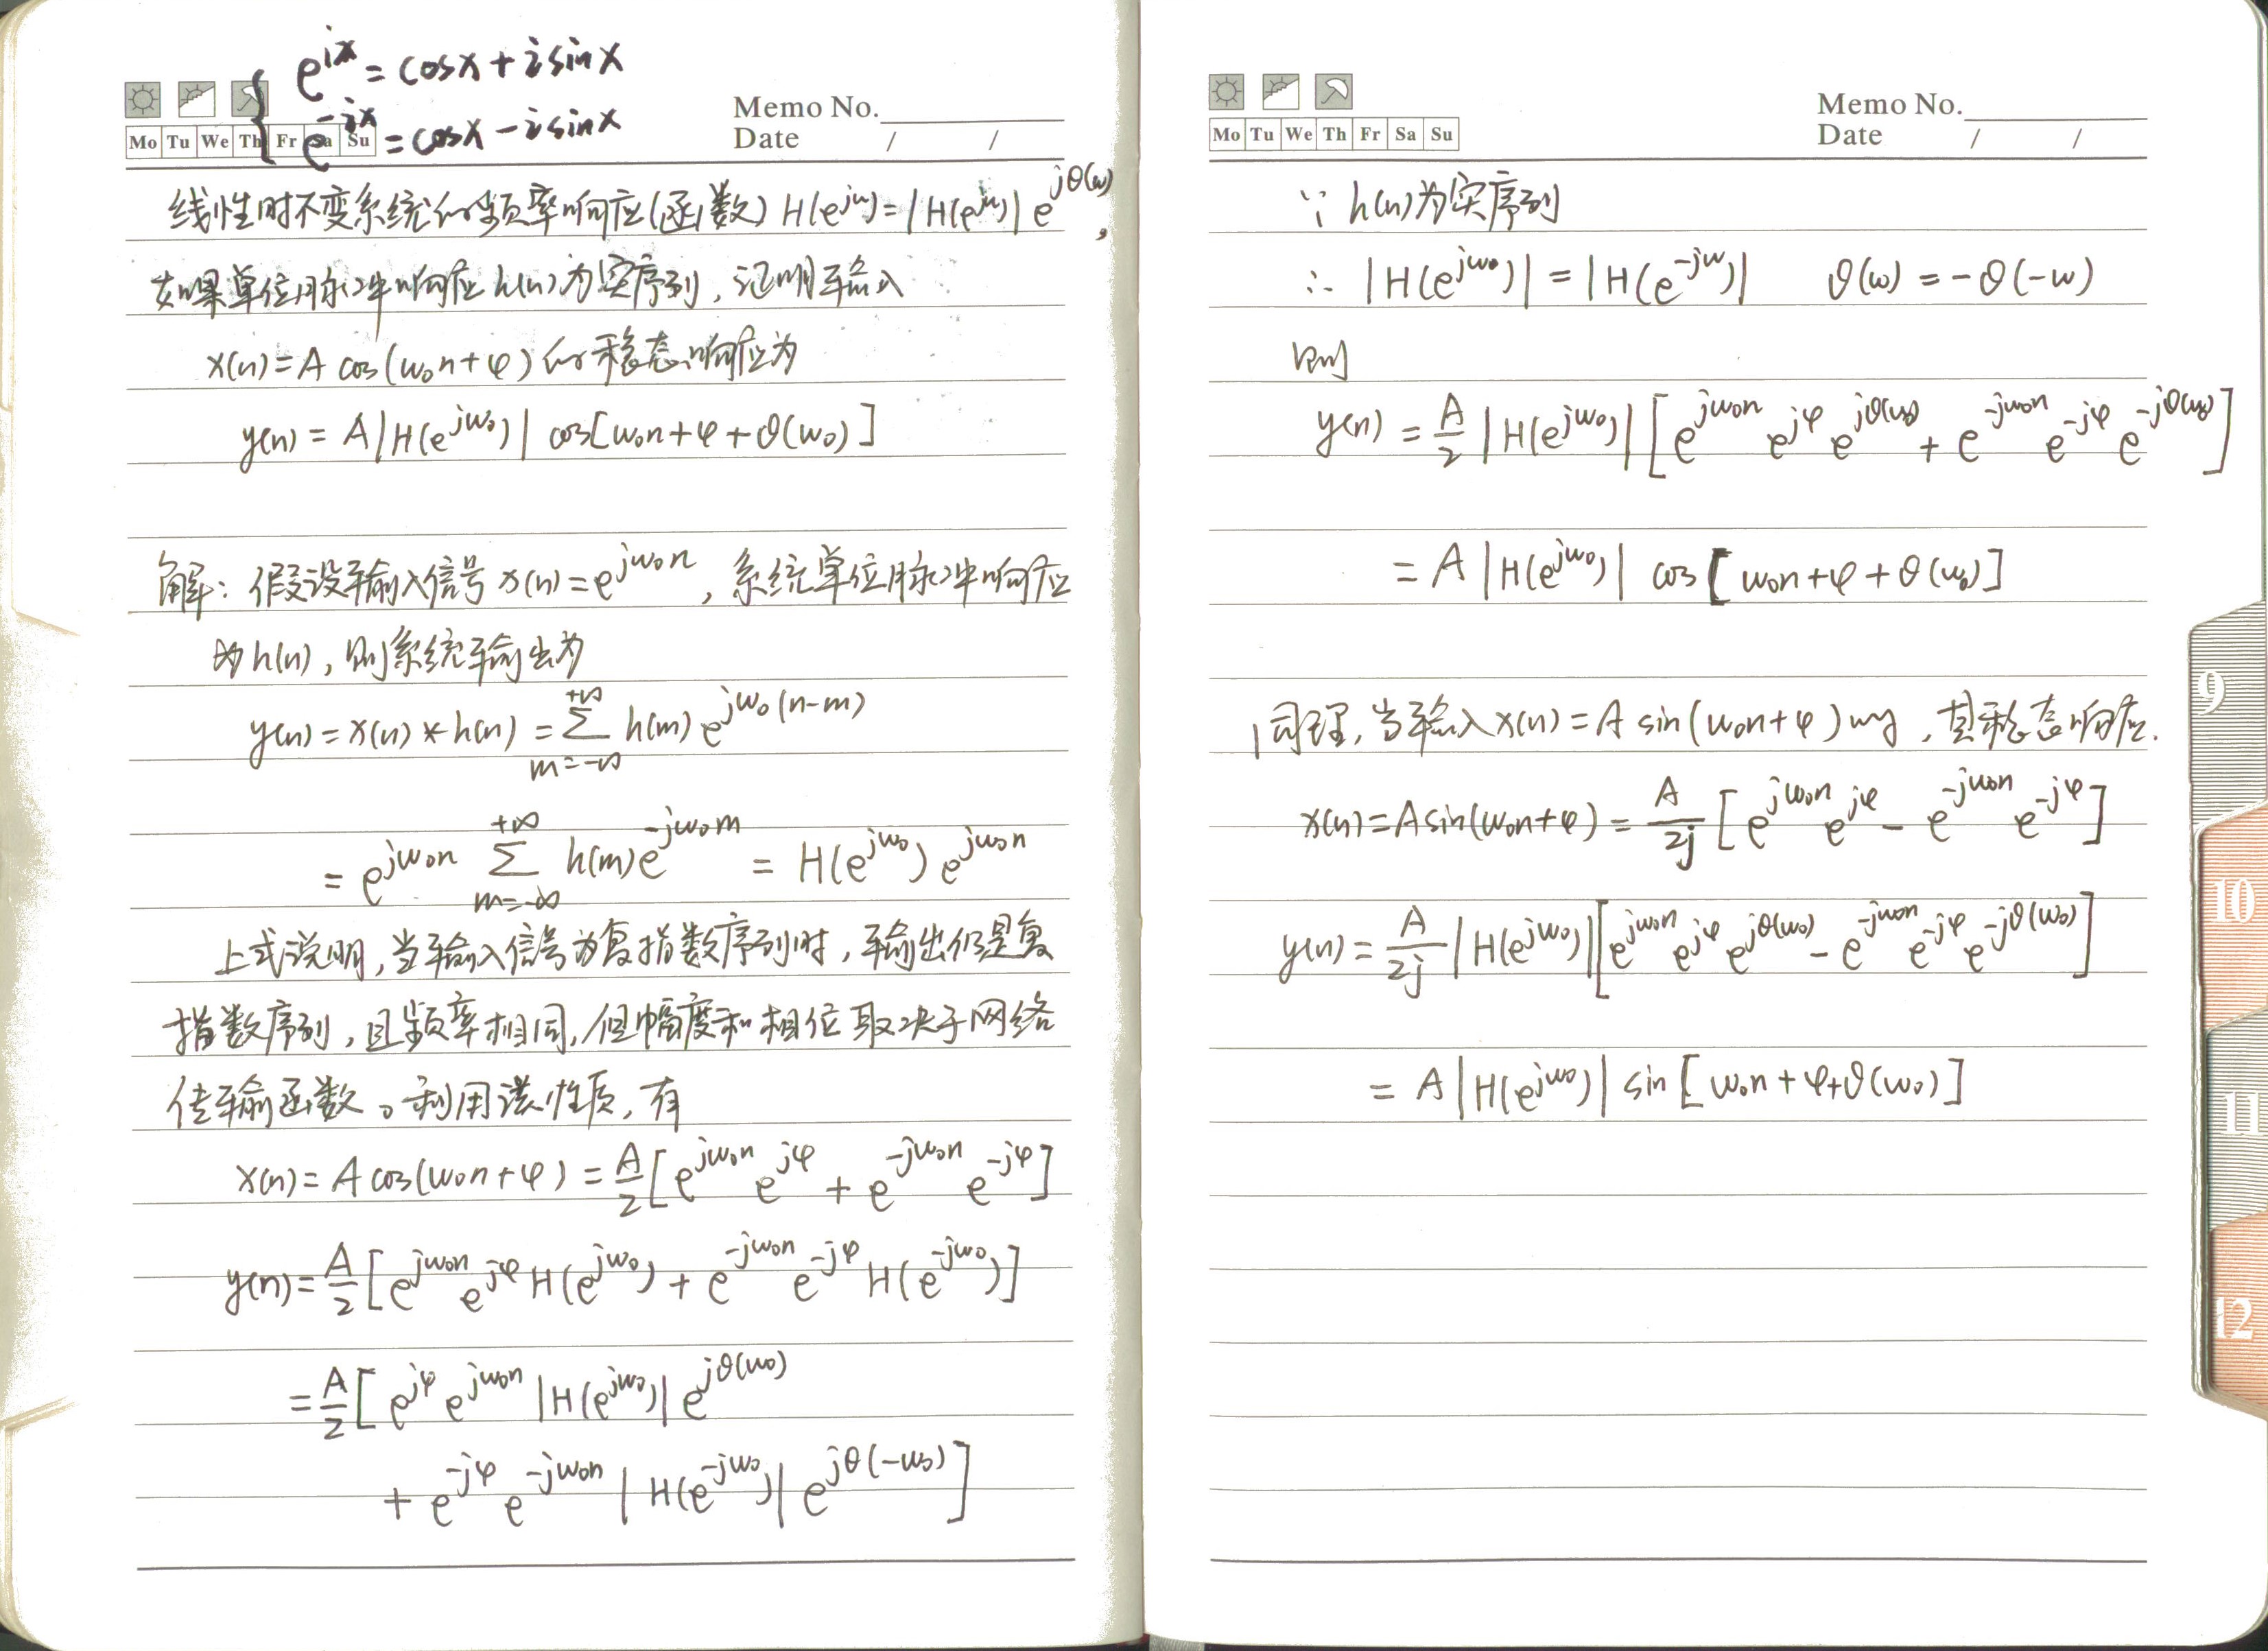 e^{ix} = cosx + i sinx
e^{-ix} = cosx - i sinx
Memo No.
Mo Tu We Th Fr Sa Su
Date / /
线性时不变系统的频率响应(函数) H(e^{jω}) = |H(e^{jω})| e^{jθ(ω)},
如果单位脉冲响应h(n)为实序列, 证明输入
x(n) = A cos(ω₀n+φ) 的稳态响应为
y(n) = A|H(e^{jω₀})| cos[ω₀n+φ+θ(ω₀)]
解: 假设输入信号 x(n) = e^{jω₀n}, 系统单位脉冲响应
为h(n), 则系统输出为
y(n) = x(n) * h(n) = \sum_{m=-∞}^{+∞} h(m) e^{jω₀(n-m)}
= e^{jω₀n} \sum_{m=-∞}^{+∞} h(m) e^{-jω₀m} = H(e^{jω₀}) e^{jω₀n}
上式说明, 当输入信号为复指数序列时, 输出仍是复
指数序列, 且频率相同, 但幅度和相位取决于网络
传输函数。利用该性质, 有
x(n) = A cos(ω₀n+φ) = A/2 [e^{jω₀n} e^{jφ} + e^{-jω₀n} e^{-jφ}]
y(n) = A/2 [e^{jω₀n} e^{jφ} H(e^{jω₀}) + e^{-jω₀n} e^{-jφ} H(e^{-jω₀})]
= A/2 [e^{jφ} e^{jω₀n} |H(e^{jω₀})| e^{jθ(ω₀)}
+ e^{-jφ} e^{-jω₀n} |H(e^{-jω₀})| e^{jθ(-ω₀)}]
Memo No.
Mo Tu We Th Fr Sa Su
Date / /
∵ h(n)为实序列
∴ |H(e^{jω₀})| = |H(e^{-jω})| θ(ω) = -θ(-ω)
则
y(n) = A/2 |H(e^{jω₀})| [e^{jω₀n} e^{jφ} e^{jθ(ω₀)} + e^{-jω₀n} e^{-jφ} e^{-jθ(ω₀)}]
= A |H(e^{jω₀})| cos[ω₀n+φ+θ(ω₀)]
同理, 当输入x(n) = A sin(ω₀n+φ)时, 其稳态响应.
x(n) = A sin(ω₀n+φ) = A/2j [e^{jω₀n} e^{jφ} - e^{-jω₀n} e^{-jφ}]
y(n) = A/2j |H(e^{jω₀})| [e^{jω₀n} e^{jφ} e^{jθ(ω₀)} - e^{-jω₀n} e^{-jφ} e^{-jθ(ω₀)}]
= A |H(e^{jω₀})| sin[ω₀n+φ+θ(ω₀)]
9
10
11
12